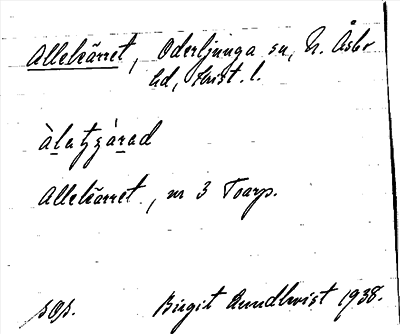 Allekärret, Oderljunga sn, N. Åsbo
hd, Krist. l.
àlatzçàrad
Allekärret, nr 3 Toarp.
sOp. Birgit Sundkvist 1938.